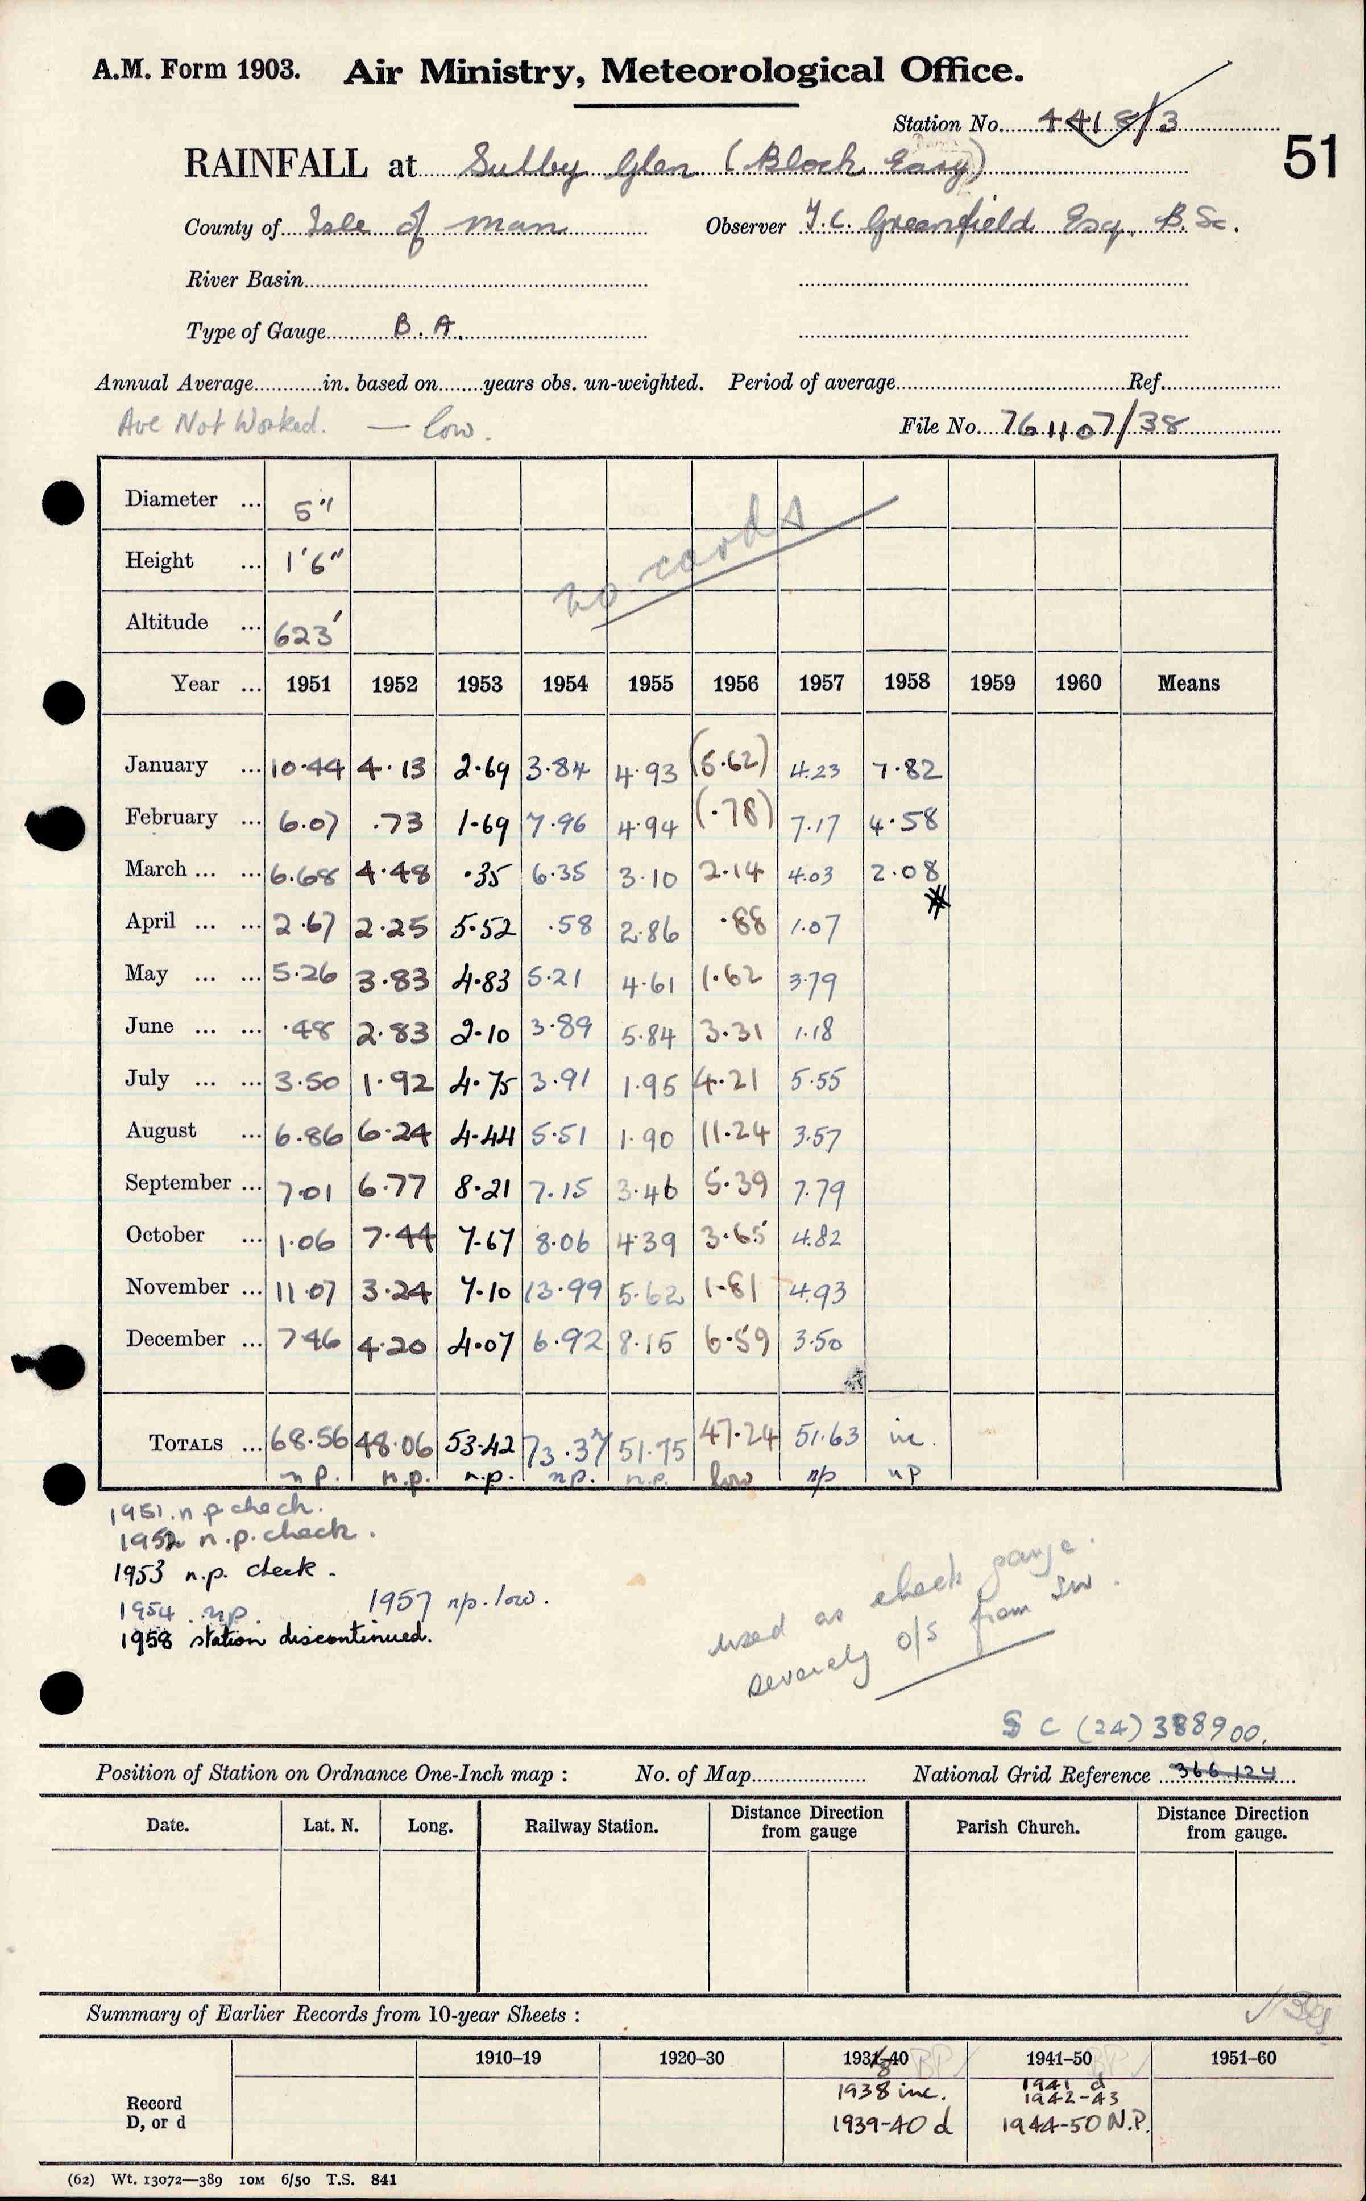 A.M. Form 1903. Air Ministry, Meteorological Office.
Station No. 4418/3
51
RAINFALL at Sulby Glen (Block Eary)
County of Isle of Man Observer T.C. Greenfield Esq. B.Sc.
River Basin
Type of Gauge B.A.
Annual Average in. based on years obs. un-weighted. Period of average Ref.
Ave Not Worked. — low.
File No. 761107/38
Diameter ... 5"
Height ... 1'6"
no cards
Altitude ... 623'
Year ... 1951 1952 1953 1954 1955 1956 1957 1958 1959 1960 Means
January ... 10.44 4.13 2.69 3.84 4.93 (5.62) 4.23 7.82
February ... 6.07 .73 1.69 7.96 4.94 (.78) 7.17 4.58
March ... ... 6.68 4.48 .35 6.35 3.10 2.14 4.03 2.08
April ... ... 2.67 2.25 5.52 .58 2.86 .88 1.07
May ... ... 5.26 3.83 4.83 5.21 4.61 1.62 3.79
June ... ... .48 2.83 2.10 3.89 5.84 3.31 1.18
July ... ... 3.50 1.92 4.75 3.91 1.95 4.21 5.55
August ... 6.86 6.24 4.44 5.51 1.90 11.24 3.57
September ... 7.01 6.77 8.21 7.15 3.46 5.39 7.79
October ... 1.06 7.44 7.67 8.06 4.39 3.65 4.82
November ... 11.07 3.24 7.10 13.99 5.62 1.81 4.93
December ... 7.46 4.20 4.07 6.92 8.15 6.59 3.50
TOTALS ... 68.56 48.06 53.42 73.37 51.75 47.24 51.63 inc.
n.p. n.p. n.p. n.p. n.p. low np np
1951. n p check.
1952 n.p. check.
1953 n.p. check.
1954 . n.p. 1957 n.p. low.
1958 station discontinued.
used as check gauge.
severely o/s from SW.
S C (24) 388900.
Position of Station on Ordnance One-Inch map : No. of Map National Grid Reference 366.124
Date. Lat. N. Long. Railway Station. Distance Direction from gauge Parish Church. Distance Direction from gauge.
Summary of Earlier Records from 10-year Sheets :
1910–19 1920–30 1931–40 1941–50 1951–60
Record D, or d
1938 inc. 1941 d
1942-43
1939-40 d 1944-50 N.P.
(62) Wt. 13072—389 10M 6/50 T.S. 841